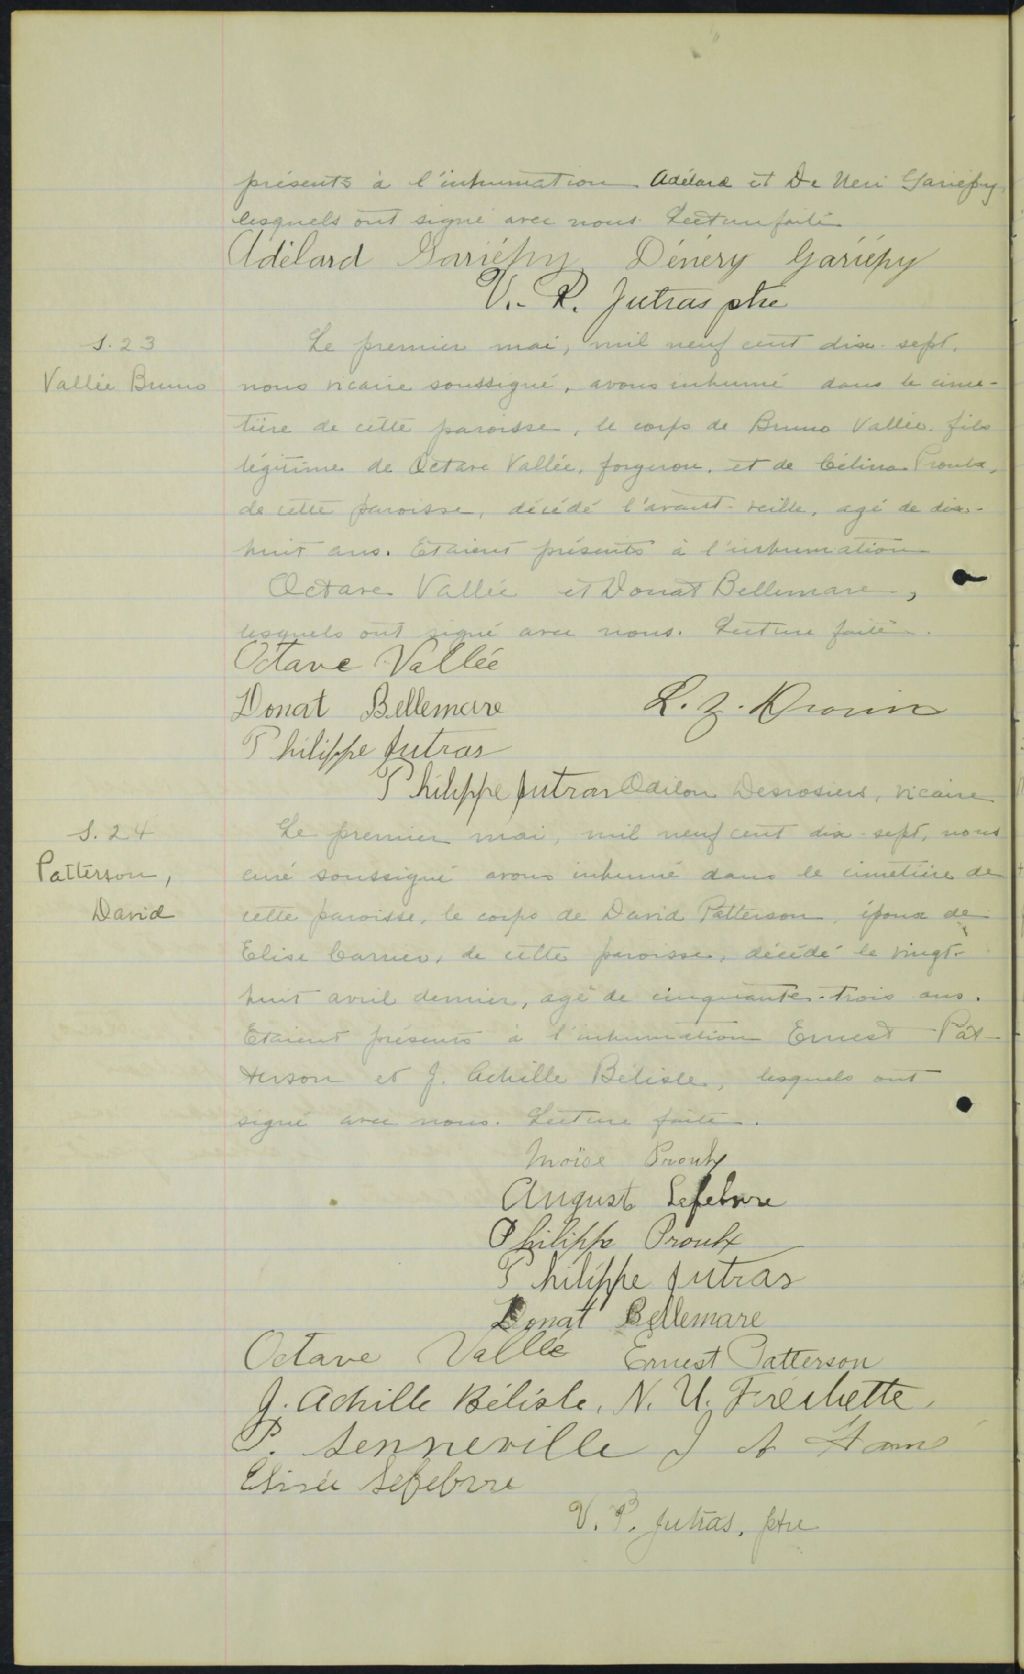 présents à l'inhumation Adélard et De Neri Gariépy,
lesquels ont signé avec nous. Lecture faite
Adélard Gariépy Dénéry Gariépy
V. P. Jutras ptre
S. 23
Vallée Bruno
Le premier mai, mil neuf cent dix-sept,
nous vicaire soussigné, avons inhumé dans le cime-
tière de cette paroisse, le corps de Bruno Vallée fils
légitime de Octave Vallée, forgeron, et de Célina Proulx,
de cette paroisse, décédé l'avant-veille, agé de dix-
huit ans. Etaient présents à l'inhumation
Octave Vallée et Donat Bellemare,
lesquels ont signé avec nous. Lecture faite.
Octave Vallée
Donat Bellemare L. Z. Drouin
Philippe Jutras
Philippe Jutras Odilon Desrosiers, vicaire
S. 24
Patterson,
David
Le premier mai, mil neuf cent dix-sept, nous
curé soussigné avons inhumé dans le cimetière de
cette paroisse, le corps de David Patterson, époux de
Elise Carrier, de cette paroisse, décédé le vingt-
huit avril dernier, agé de cinquante-trois ans.
Etaient présents à l'inhumation Ernest Pat-
terson et J. Achille Bélisle, lesquels ont
signé avec nous. Lecture faite.
Moïse Proulx
August Lefebvre
Philippe Proulx
Philippe Jutras
Donat Bellemare
Octave Vallée Ernest Patterson
J. Achille Bélisle, N. U. Frechette,
P. Senneville J A
Elisée Lefebvre
V. P. Jutras, ptre